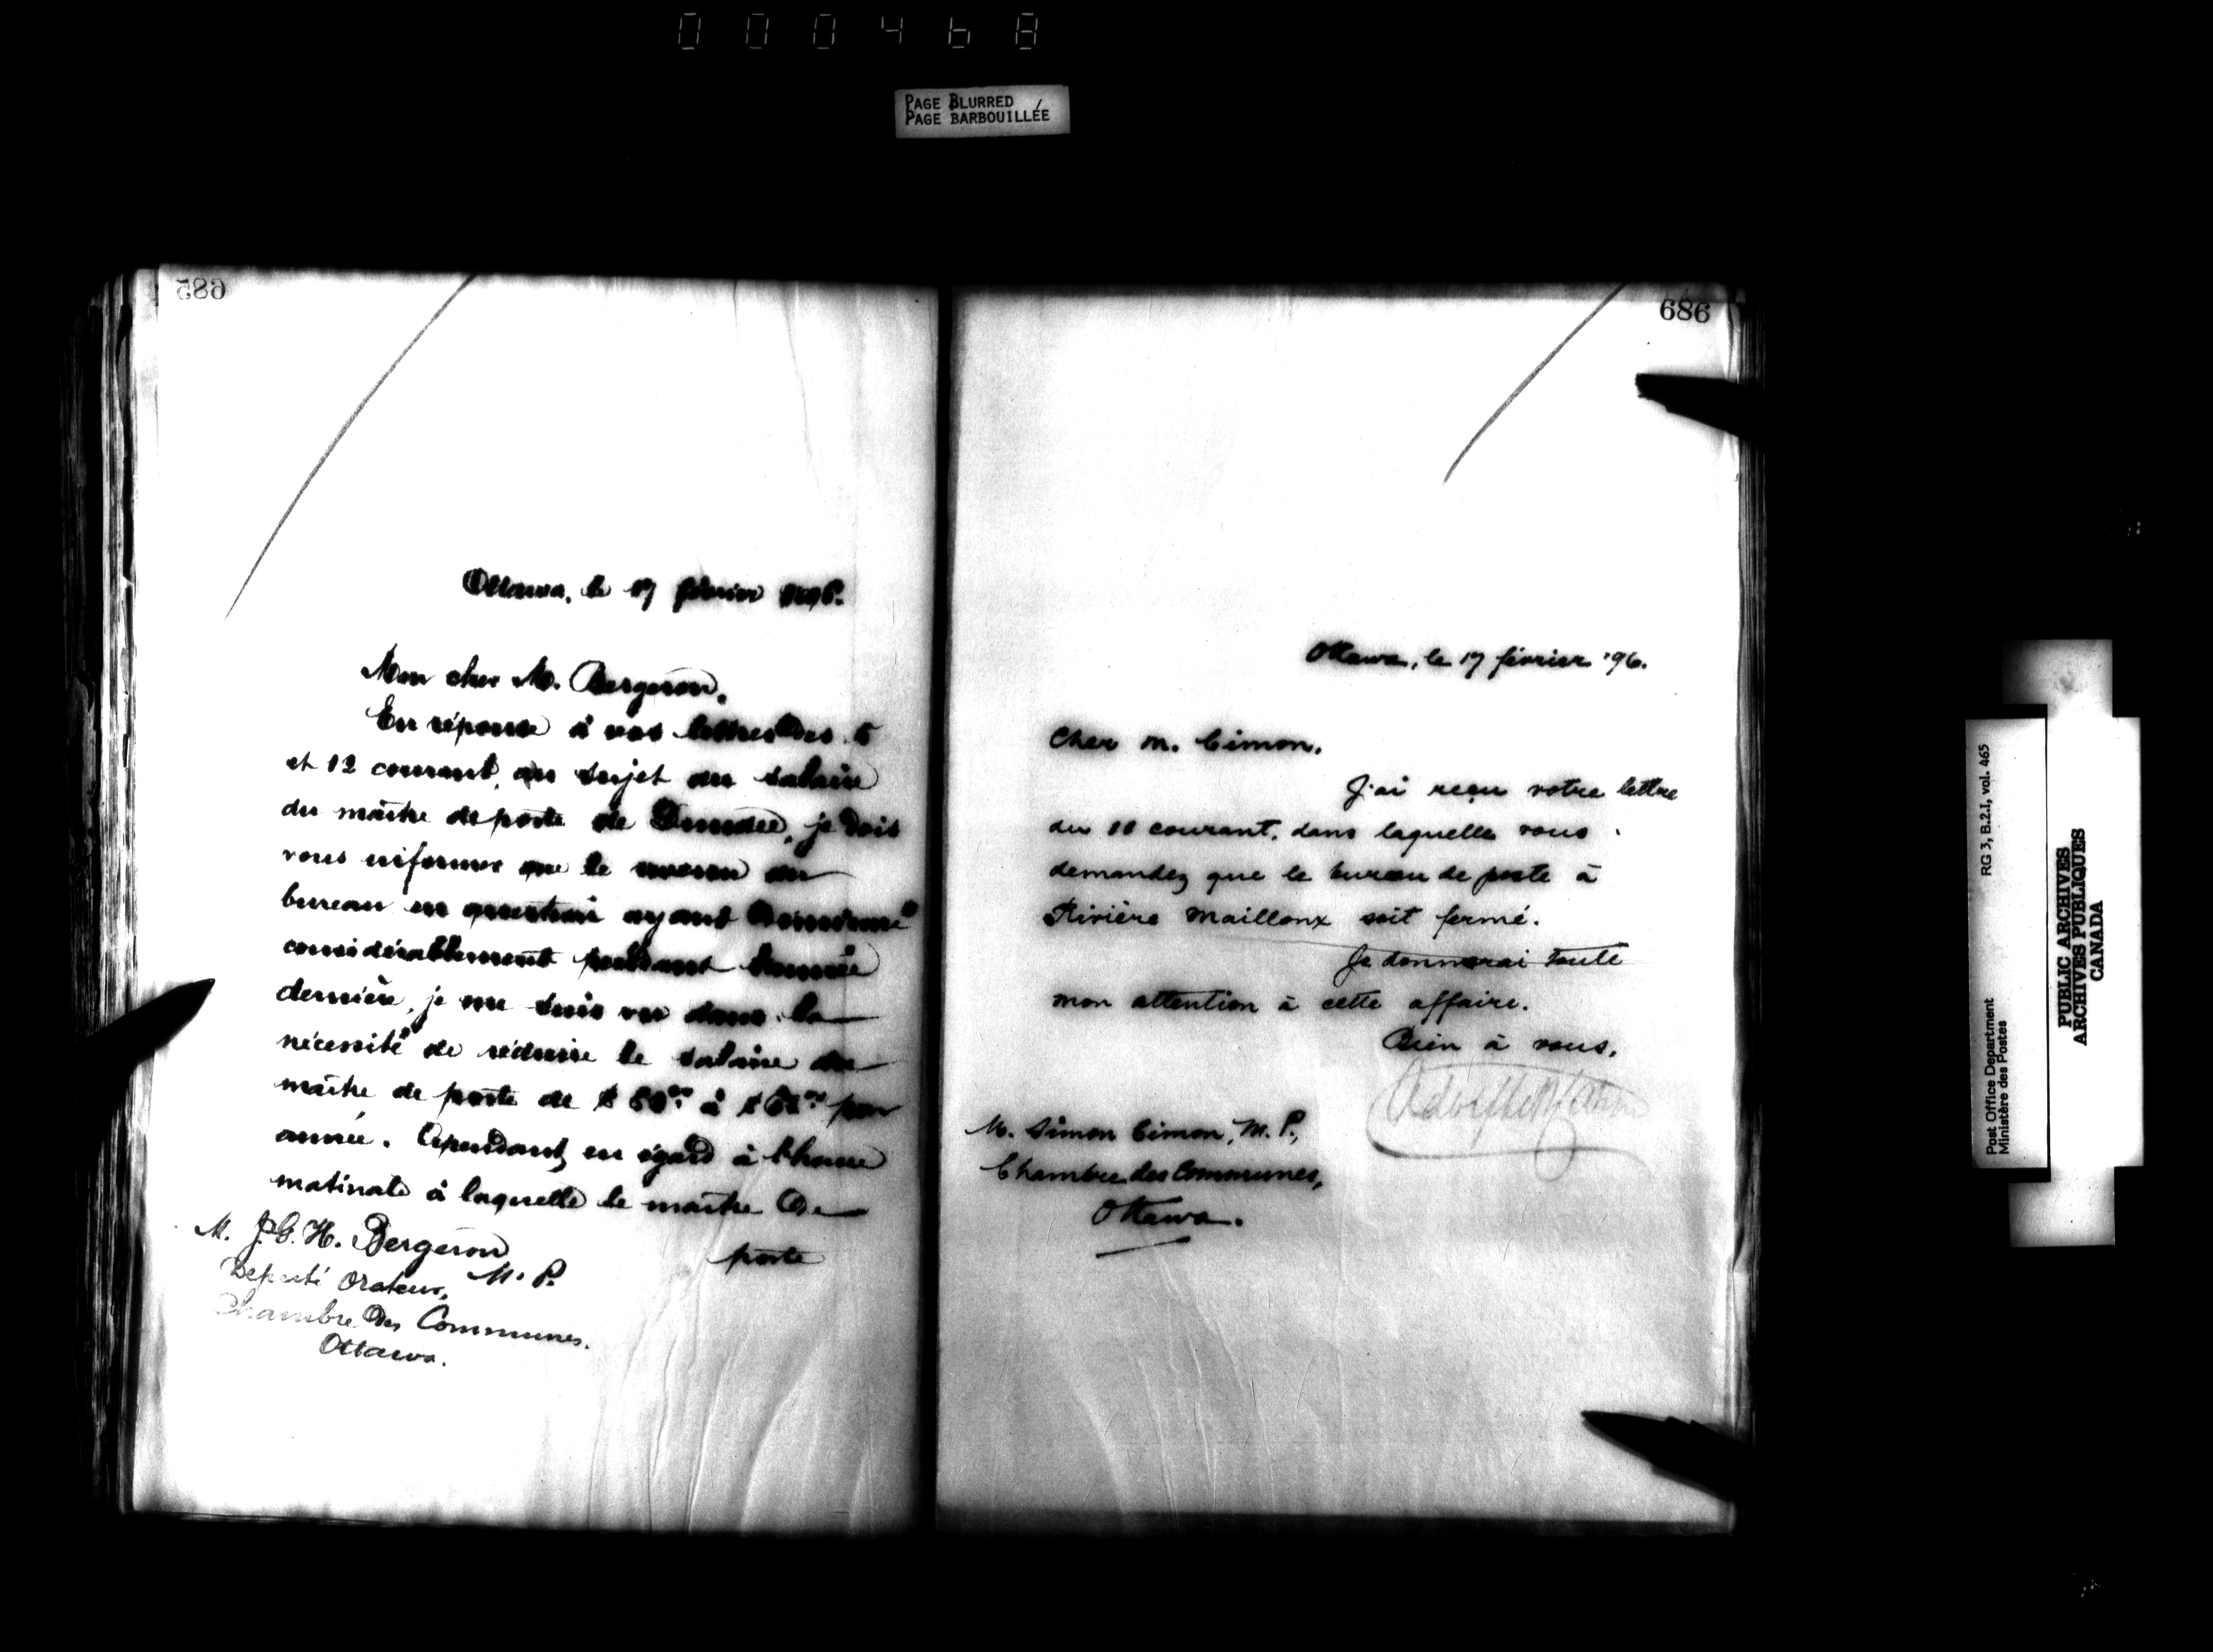 000468
PAGE BLURRED
PAGE BARBOUILLÉE
685
Ottawa, le 17 février 1896.
Mon cher M. Bergeron,
En réponse à vos lettres des 5
et 12 courant, au sujet du salaire
du maître de poste de Dundee, je dois
vous informer que le revenu du
bureau en question ayant diminué
considérablement pendant l'année
dernière, je me suis vu dans la
nécessité de réduire le salaire du
maître de poste de à par
année. Cependant, eu égard à l'heure
matinale à laquelle le maître de
poste
M. J. G. H. Bergeron
Député Orateur, M. P.
Chambre des Communes.
Ottawa.
686
Ottawa, le 17 février '96.
Cher M. Cimon,
J'ai reçu votre lettre
du courant, dans laquelle vous
demandez que le bureau de poste à
Rivière Mailloux soit fermé.
Je donnerai toute
mon attention à cette affaire.
Bien à vous,
M. Simon Cimon, M. P.,
Chambre des Communes,
Ottawa.
RG 3, B.2.I, vol. 465
Post Office Department
Ministère des Postes
PUBLIC ARCHIVES
ARCHIVES PUBLIQUES
CANADA